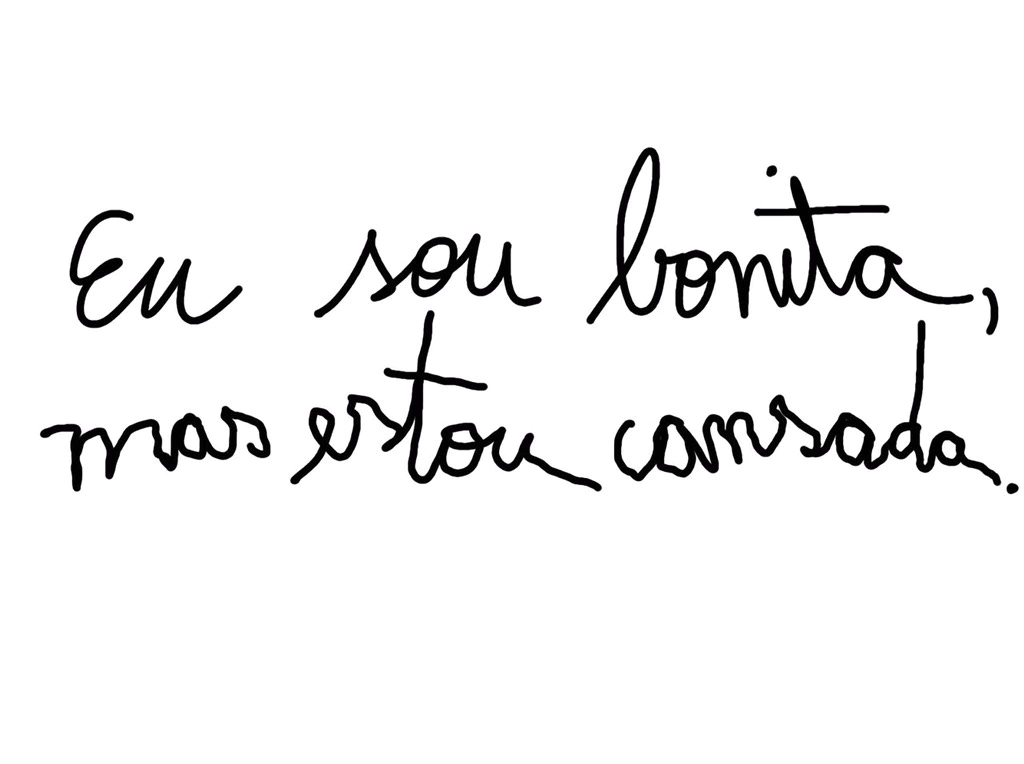 Eu sou bonita,
mas estou cansada.